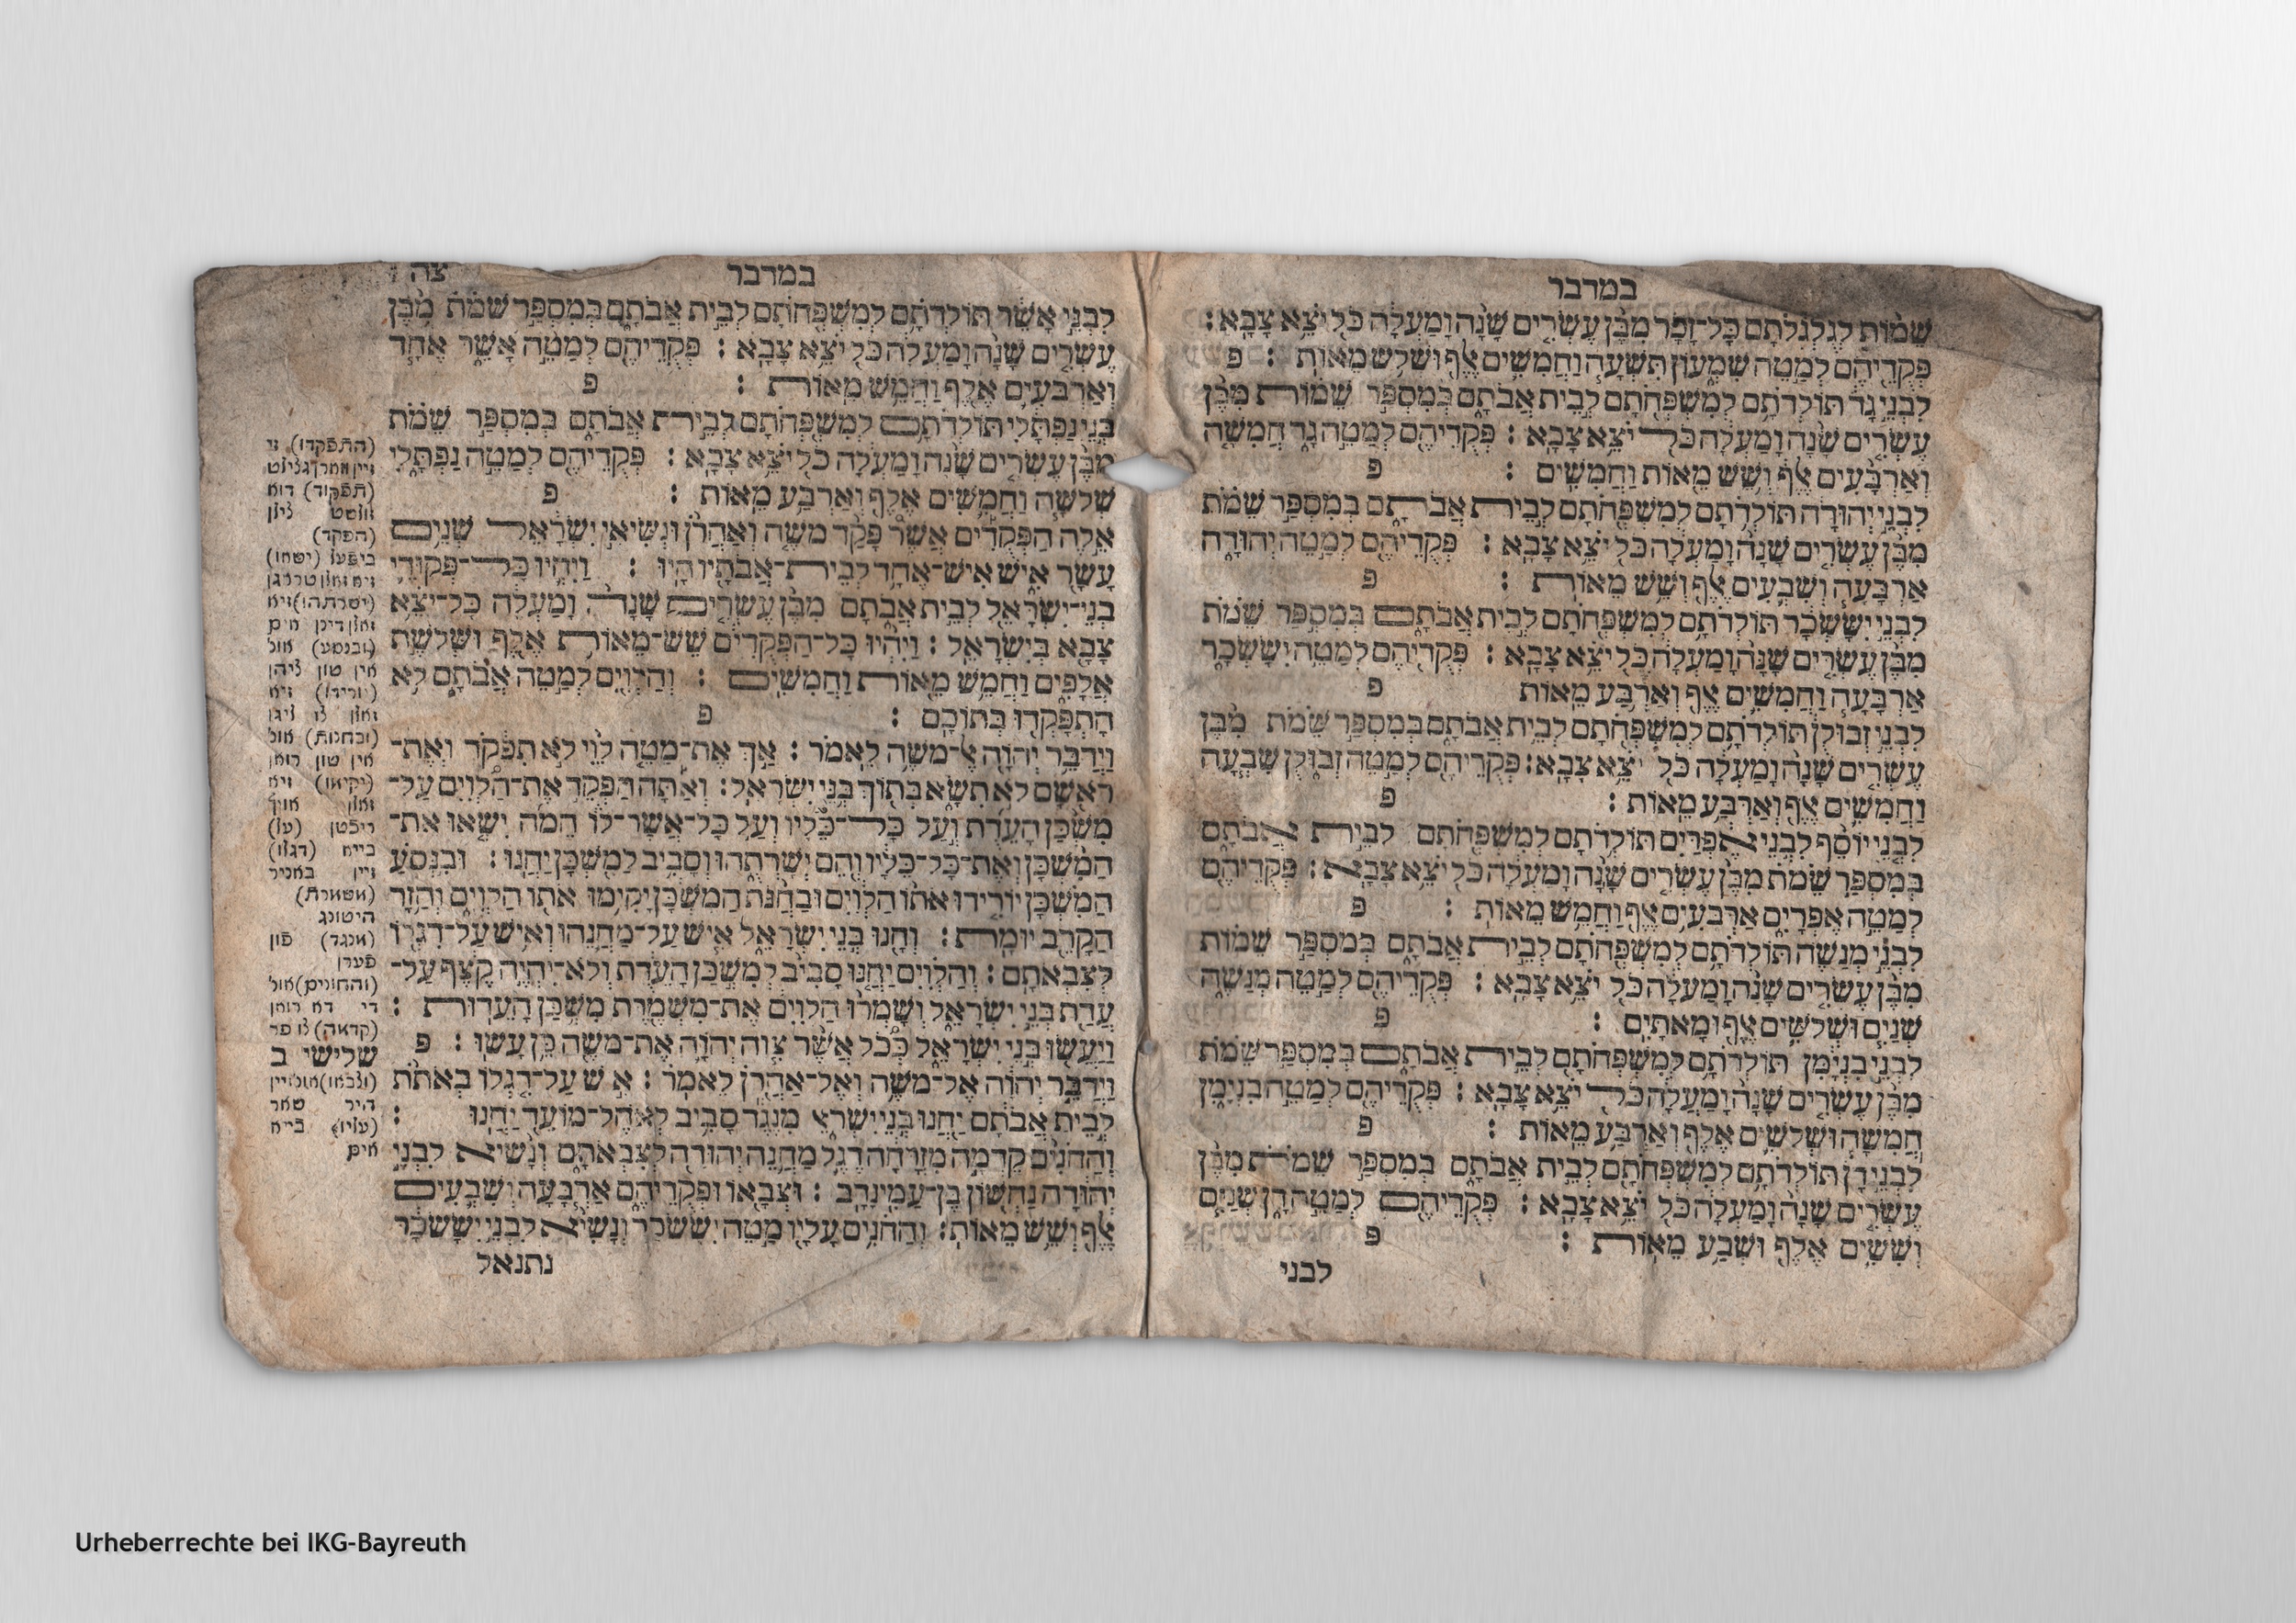 במדבר
שמות לגלגלתם כל־זכר מבן עשרים שנה ומעלה כל יצא צבא:
פקדיהם למטה שמעון תשעה וחמשים אלף ושלש מאות : פ
לבני גד תולדתם למשפחתם לבית אבתם במספר שמות מבן
עשרים שנה ומעלה כל יצא צבא : פקדיהם למטה גד חמשה
וארבעים אלף ושש מאות וחמשים : פ
לבני יהודה תולדתם למשפחתם לבית אבתם במספר שמת
מבן עשרים שנה ומעלה כל יצא צבא : פקדיהם למטה יהודה
ארבעה ושבעים אלף ושש מאות : פ
לבני יששכר תולדתם למשפחתם לבית אבתם במספר שמת
מבן עשרים שנה ומעלה כל יצא צבא : פקדיהם למטה יששכר
ארבעה וחמשים אלף וארבע מאות פ
לבני זבולן תולדתם למשפחתם לבית אבתם במספר שמת מבן
עשרים שנה ומעלה כל יצא צבא: פקדיהם למטה זבולן שבעה
וחמשים אלף וארבע מאות : פ
לבני יוסף לבני אפרים תולדתם למשפחתם לבית אבתם
במספר שמת מבן עשרים שנה ומעלה כל יצא צבא : פקדיהם
למטה אפרים ארבעים אלף וחמש מאות : פ
לבני מנשה תולדתם למשפחתם לבית אבתם במספר שמות
מבן עשרים שנה ומעלה כל יצא צבא : פקדיהם למטה מנשה
שנים ושלשים אלף ומאתים : פ
לבני בנימן תולדתם למשפחתם לבית אבתם במספר שמת
מבן עשרים שנה ומעלה כל יצא צבא : פקדיהם למטה בנימן
חמשה ושלשים אלף וארבע מאות : פ
לבני דן תולדתם למשפחתם לבית אבתם במספר שמות מבן
עשרים שנה ומעלה כל יצא צבא : פקדיהם למטה דן שנים
וששים אלף ושבע מאות : פ
לבני
במדבר
צה
לבני אשר תולדתם למשפחתם לבית אבתם במספר שמת מבן
עשרים שנה ומעלה כל יצא צבא : פקדיהם למטה אשר אחד
וארבעים אלף וחמש מאות : פ
בני נפתלי תולדתם למשפחתם לבית אבתם במספר שמת
מבן עשרים שנה ומעלה כל יצא צבא : פקדיהם למטה נפתלי
שלשה וחמשים אלף וארבע מאות : פ
אלה הפקדים אשר פקד משה ואהרן ונשיאי ישראל שנים
עשר איש איש־אחד לבית־אבתיו היו : ויהיו כל־פקודי
בני־ישראל לבית אבתם מבן עשרים שנה ומעלה כל־יצא
צבא בישראל : ויהיו כל־הפקדים שש־מאות אלף ושלשת
אלפים וחמש מאות וחמשים : והלוים למטה אבתם לא
התפקדו בתוכם : פ
וידבר יהוה אל־משה לאמר : אך את־מטה לוי לא תפקד ואת־
ראשם לא תשא בתוך בני ישראל: ואתה הפקד את־הלוים על־
משכן העדת ועל כל־כליו ועל כל־אשר־לו המה ישאו את־
המשכן ואת־כל־כליו והם ישרתהו וסביב למשכן יחנו : ובנסע
המשכן יורידו אתו הלוים ובחנת המשכן יקימו אתו הלוים והזר
הקרב יומת : וחנו בני ישראל איש על־מחנהו ואיש על־דגלו
לצבאתם : והלוים יחנו סביב למשכן העדת ולא־יהיה קצף על־
עדת בני ישראל ושמרו הלוים את־משמרת משכן העדות :
ויעשו בני ישראל ככל אשר צוה יהוה את־משה כן עשו : פ
וידבר יהוה אל־משה ואל־אהרן לאמר : איש על־דגלו באתת
לבית אבתם יחנו בני ישראל מנגד סביב לאהל־מועד יחנו :
והחנים קדמה מזרחה דגל מחנה יהודה לצבאתם ונשיא לבני
יהודה נחשון בן־עמינדב : וצבאו ופקדיהם ארבעה ושבעים
אלף ושש מאות: והחנים עליו מטה יששכר ונשיא לבני יששכר
נתנאל
(התפקדו)
(תפקוד)
(הפקד)
(ישאו)
(ישרתהו)
(ובנסע)
(יורידו)
(ובחנות)
(יקימו)
(על)
(דגלו)
(משמרת)
(מנגד) פון
(והחונים)
(קדמה)
שלישי ב
(עליו)
Urheberrechte bei IKG-Bayreuth